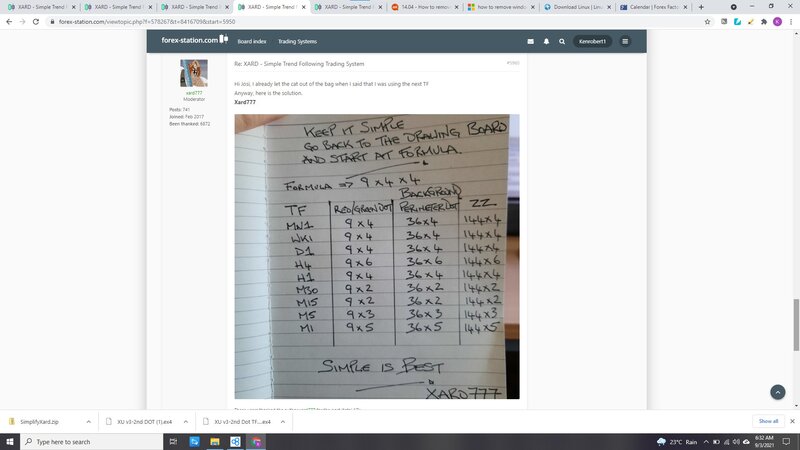 XARD - Simple Trend F
XARD - Simple Trend F
XARD - Simple Trend F
XARD - Simple Trend F
XARD - Simple Trend F
14.04 - How to remov
how to remove windo
Download Linux | Linu
Calendar | Forex Facto
forex-station.com/viewtopic.php?f=578267&t=8416709&start=5950
forex-station.com
Board index
Trading Systems
Kenrobert1
Re: XARD - Simple Trend Following Trading System
#5960
xard777
Moderator
Posts: 741
Joined: Feb 2017
Been thanked: 6872
Hi Josi, I already let the cat out of the bag when I said that I was using the next TF
Anyway, here is the solution.
Xard777
KEEP IT SIMPLE
GO BACK TO THE DRAWING BOARD
AND START AT FORMULA.
FORMULA => 9 x 4 x 4
TF RED/GREEN DOT BACKGROUND PERIMETER DOT ZZ
MN1 9 x 4 36 x 4 144 x 4
WK1 9 x 4 36 x 4 144 x 4
D1 9 x 4 36 x 4 144 x 4
H4 9 x 6 36 x 6 144 x 6
H1 9 x 4 36 x 4 144 x 4
M30 9 x 2 36 x 2 144 x 2
M15 9 x 2 36 x 2 144 x 2
M5 9 x 3 36 x 3 144 x 3
M1 9 x 5 36 x 5 144 x 5
SIMPLE IS BEST
XARD777
SimplifyXard.zip
XU v3-2nd DOT (1).ex4
XU v3-2nd Dot TF....ex4
Show all
Type here to search
23°C Rain
6:32 AM
9/3/2021